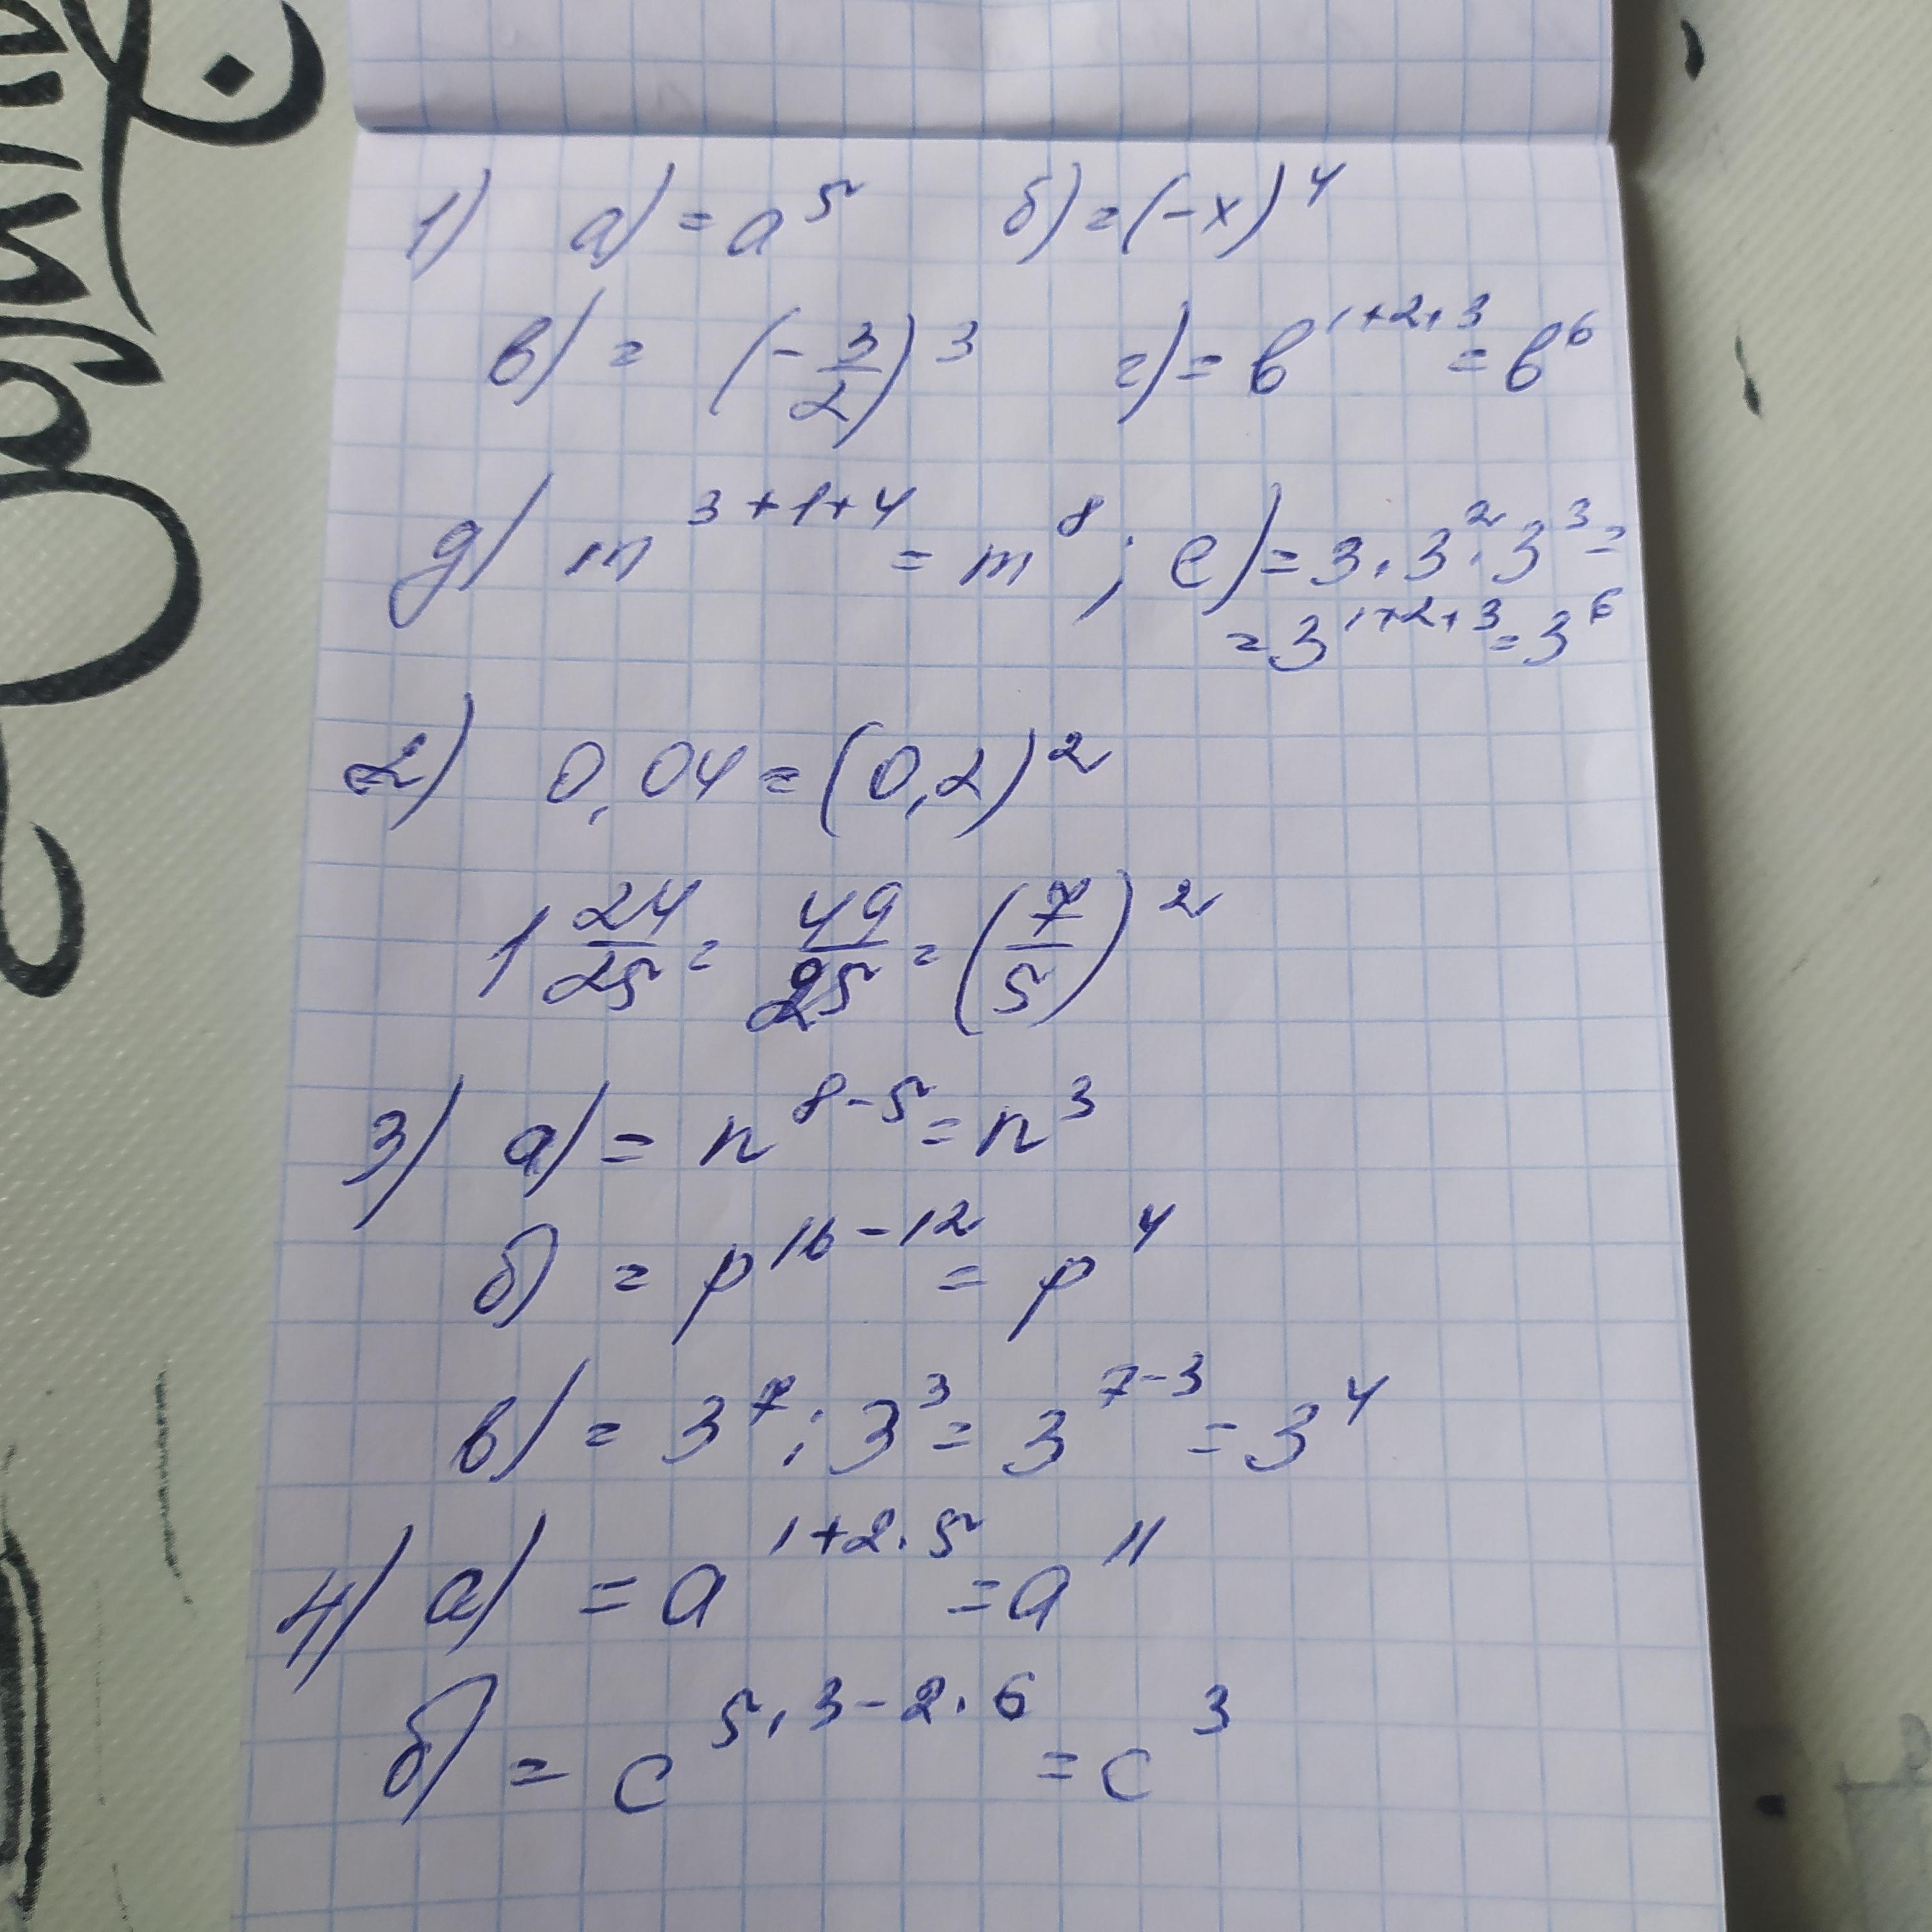 1) а) = a⁵ б) = (-x)⁴
в) = (-3/2)³ г) = b¹⁺²⁺³ = b⁶
д) m³⁺¹⁺⁴ = m⁸; е) = 3·3²·3³ =
= 3¹⁺²⁺³ = 3⁶
2) 0,04 = (0,2)²
1 24/25 = 49/25 = (7/5)²
3) а) = n⁸⁻⁵ = n³
б) = p¹⁶⁻¹² = p⁴
в) = 3⁷ : 3³ = 3⁷⁻³ = 3⁴
4) а) = a¹⁺²·⁵ = a¹¹
б) = c⁵·³⁻²·⁶ = c³